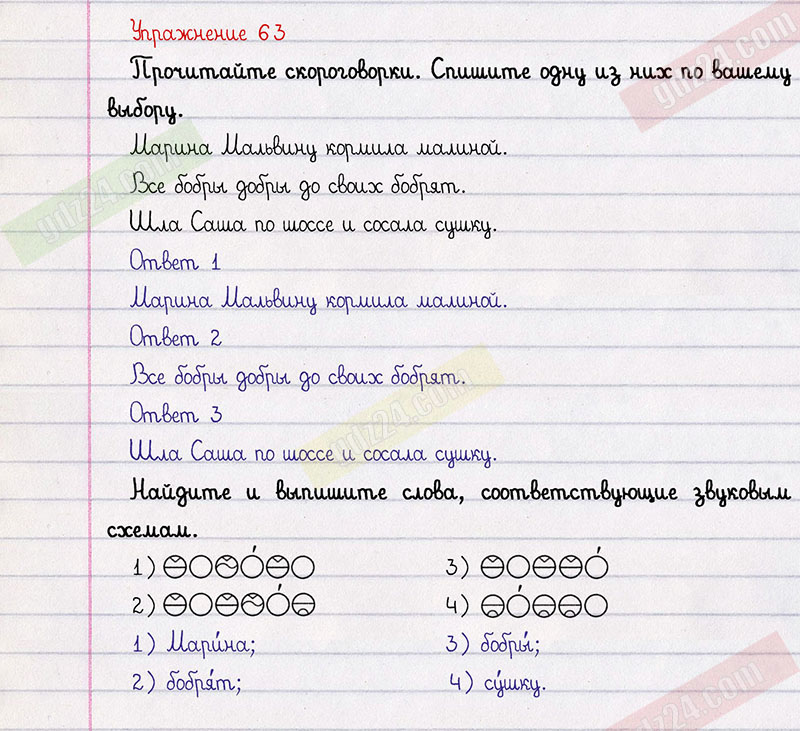 Упражнение 63
Прочитайте скороговорки. Спишите одну из них по вашему
выбору.
Марина Мальвину кормила малиной.
Все бобры добры до своих бобрят.
Шла Саша по шоссе и сосала сушку.
Ответ 1
Марина Мальвину кормила малиной.
Ответ 2
Все бобры добры до своих бобрят.
Ответ 3
Шла Саша по шоссе и сосала сушку.
Найдите и выпишите слова, соответствующие звуковым
схемам.
1) 3)
2) 4)
1) Мари́на; 3) бобры́;
2) бобря́т; 4) су́шку.
gdz24.com
gdz24.com
gdz24.com
gdz24.com